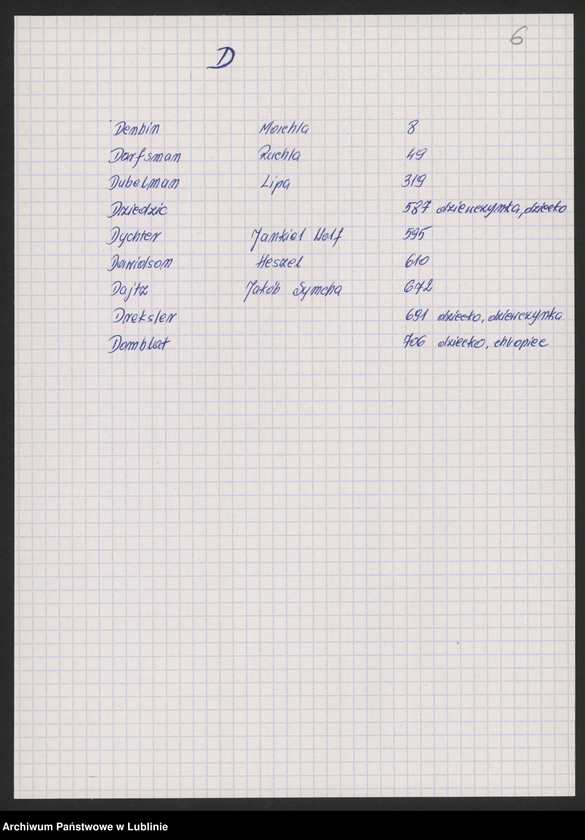 6
D
Denbin Morchla 8
Dorfsman Ruchla 49
Dubelman Lipa 319
Dziedzic 587 dziewczynka, dziecko
Dychter Jankiel Wolf 595
Dawidson Heszel 610
Dajtz Jakób Symcha 672
Dreksler 691 dziecko, dziewczynka
Domblat 706 dziecko, chłopiec
Archiwum Państwowe w Lublinie